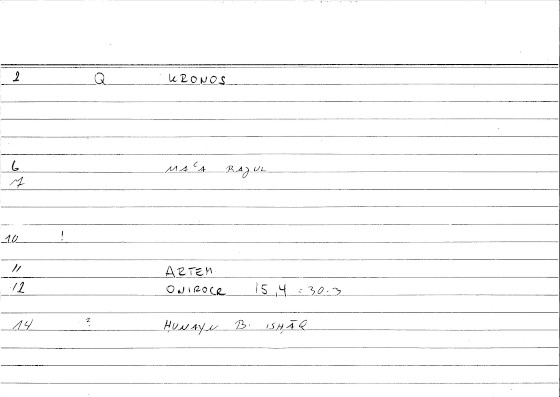 2 Q KRONOS
6 MAʿA RAJUL
7
10 !
11 ARTEM
12 ONIROCR 15,4 = 30.3
14 ? HUNAYN B. ISHĀQ